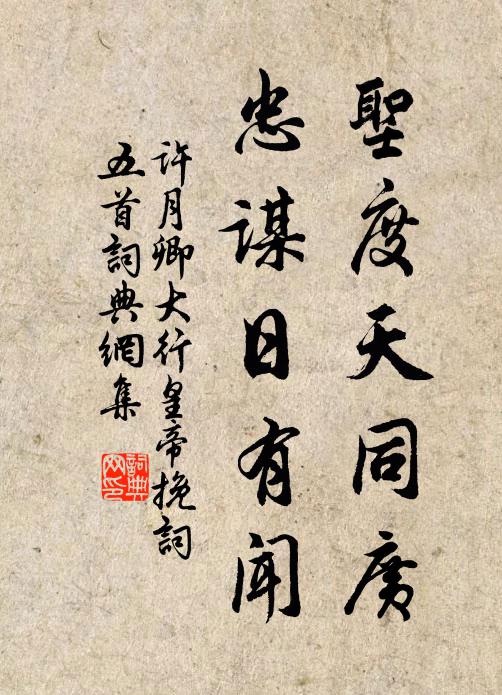 聖度天同廣
忠謀日有聞
許月卿大行皇帝挽詞
五首詞典網集
詞典
网印